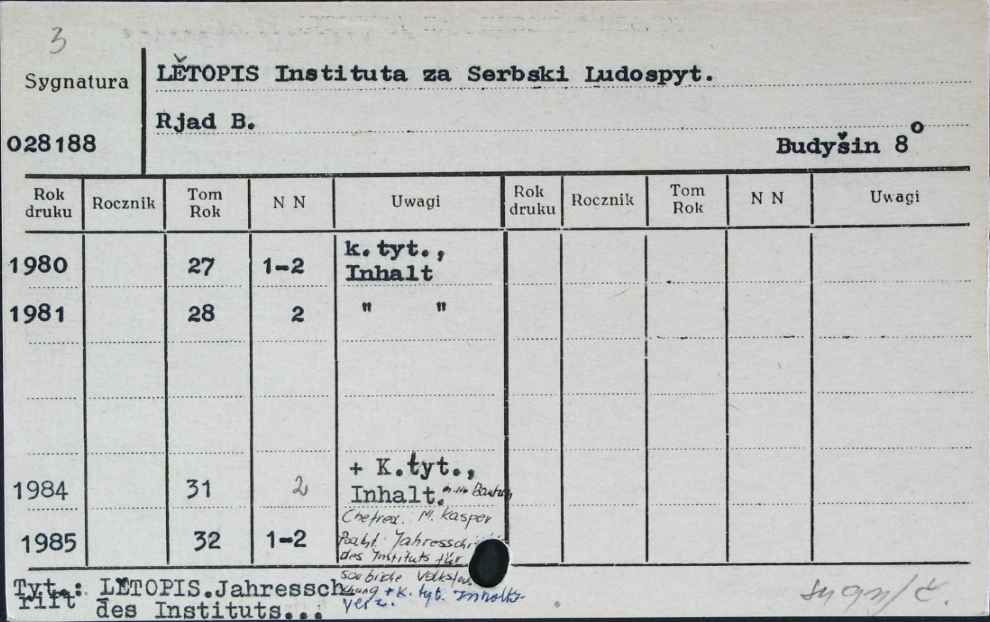 3
Sygnatura
LĚTOPIS Instituta za Serbski Ludospyt.
Rjad B.
028188
Budyšin 8º
Rok druku Rocznik Tom Rok N N Uwagi Rok druku Rocznik Tom Rok N N Uwagi
1980 27 1-2 k.tyt., Inhalt
1981 28 2 " "
1984 31 2 + K.tyt., Inhalt.
Chefred. M. Kasper
1985 32 1-2
des Instituts für
sorbische
+ k. tyt. Inhalts
verz.
Tyt.: LĚTOPIS.Jahressch
rift des Instituts...